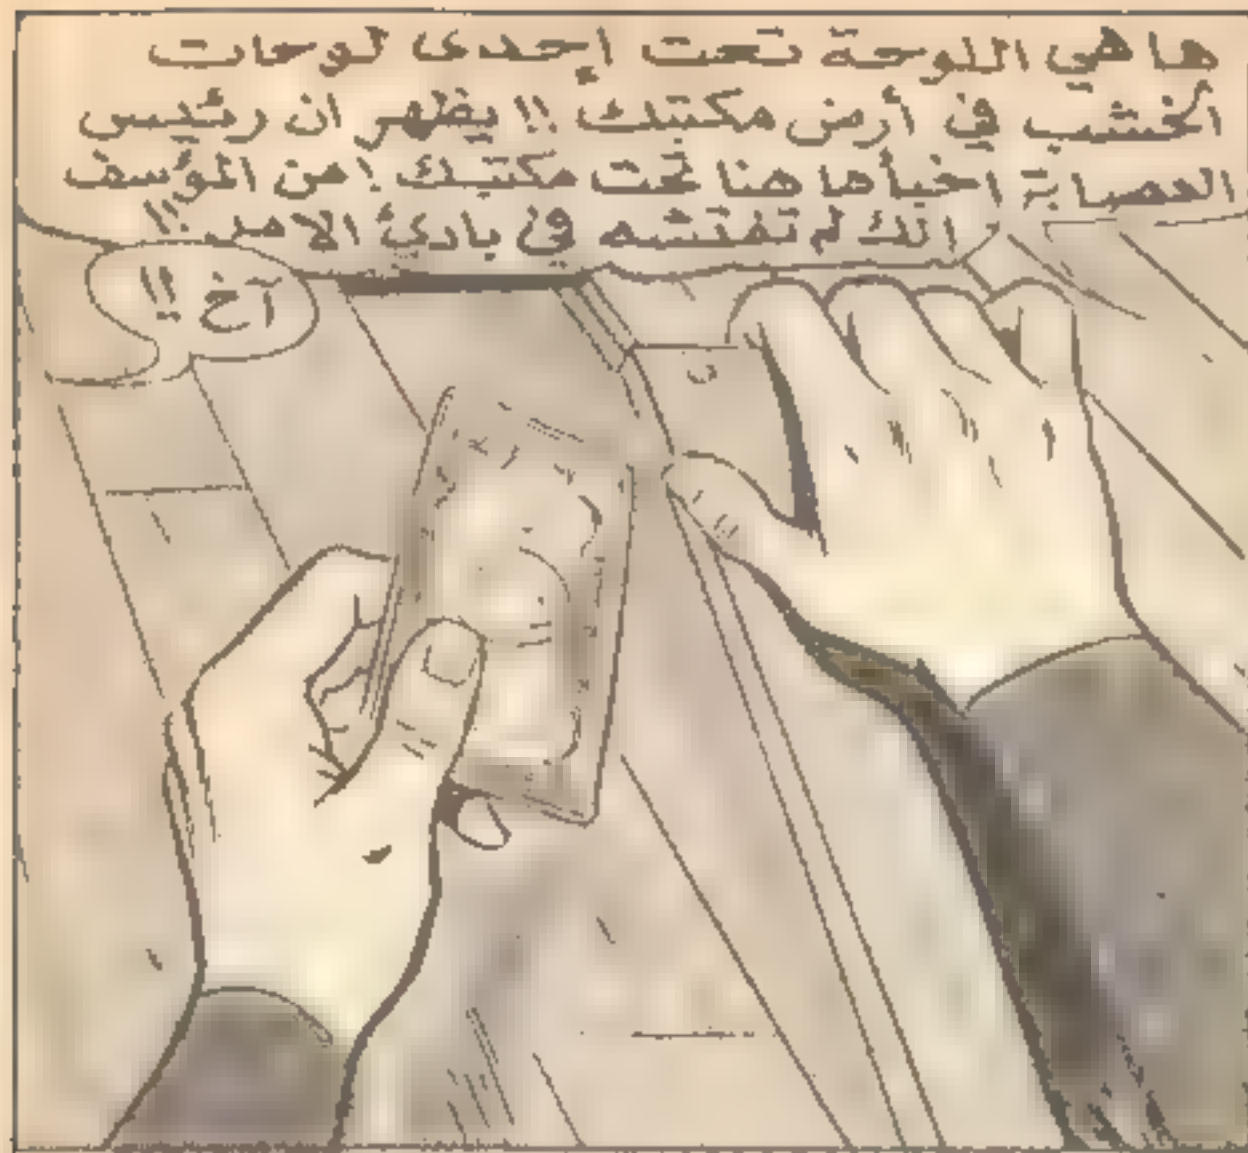 ها هي اللوحة تحت إحدى لوحات
الخشب في أرض مكتبك !! يظهر ان رئيس
العصابة اخبأها هنا تحت مكتبك ! من المؤسف
انك لم تفتشه في بادئ الامر !!
آخ !!